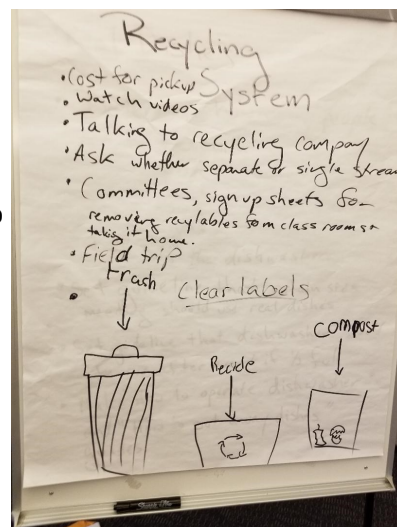 Recycling
System
• Cost for pickup
• Watch videos
• Talking to recycling company
• Ask whether separate or single stream
• Committees, sign up sheets for
removing recylables from class rooms &
taking it home.
• Field trip
•
Clear labels
trash
Recicle
compost